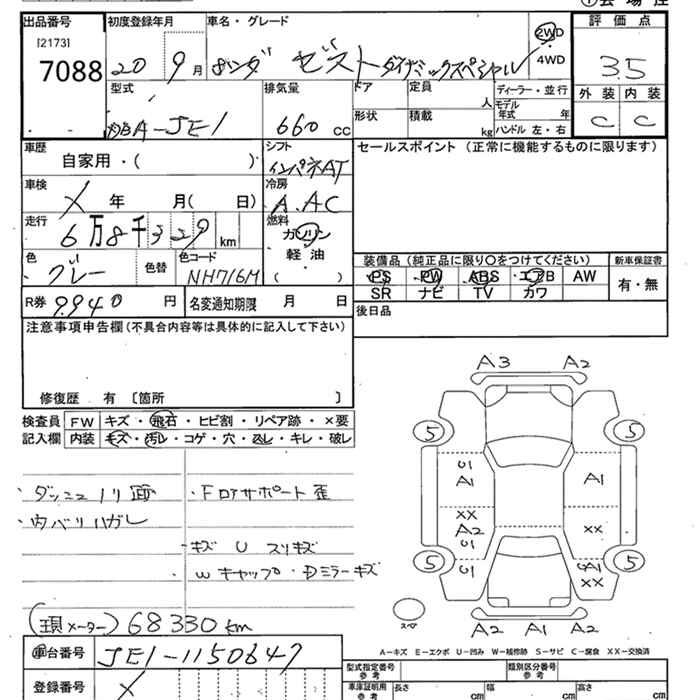 出品番号 初度登録年月 車名・グレード 評価点
[2173]
7088 20 9月 ホンダ ゼスト ダイナミックスペシャル 2WD
4WD 3.5
型式 排気量 ドア 定員 人 ディーラー・並行 外装 内装
モデル年式 年
DBA-JE1 660 cc 形状 積載 kg ハンドル 左・右 C C
車歴 シフト セールスポイント (正常に機能するものに限ります)
自家用・( ) インパネAT
車検 冷房
X 年 月( 日) A.AC
走行 燃料
6万8千329 km ガソリン
軽油
( )
色 色替 色コード 装備品 (純正品に限り○をつけてください) 新車保証書
グレー NH716M PS PW ABS エアB AW 有・無
SR ナビ TV カワ
R券 9,940 円 名変通知期限 月 日 後日品
注意事項申告欄(不具合内容等は具体的に記入して下さい)
修復歴 有 [箇所 ]
検査員 FW キズ・飛石・ヒビ割・リペア跡・×要
記入欄 内装 キズ・汚レ・コゲ・穴・スレ・キレ・破レ
A3 A2
5 5
U1 A1
A1
XX
A2 XX
U1
U1 A1
XX
5 5
・ダッシュノリ面 ・Fロアサポート歪
・内バリハガレ
・キズ U スリキズ
・Wキャップ・Dミラーキズ
スペア
A2 A1 A2
(現メーター) 68330km
A-キズ E-エクボ U-凹み W-補修跡 S-サビ C-腐食 XX-交換済
車台番号 JE1-1150647
型式指定番号 参考 類別区分番号 参考
登録番号 X
車庫証明用 参考 長さ cm 幅 cm 高さ cm